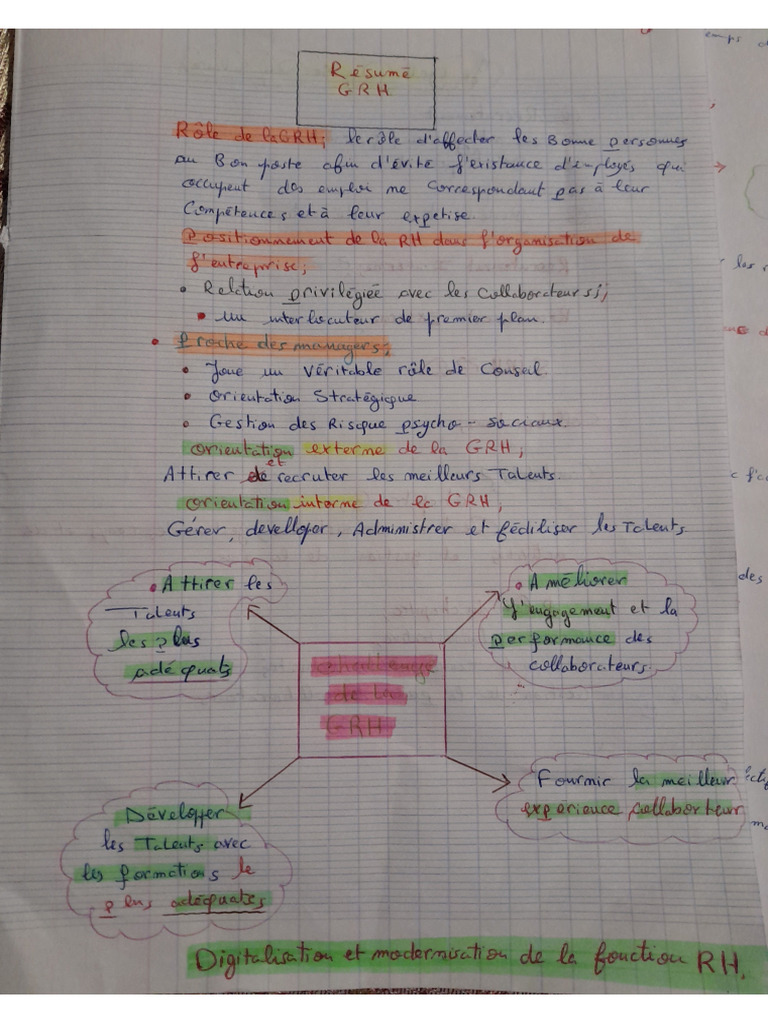 Résumé
GRH
Rôle de la GRH; le rôle d'affecter les Bonne personnes
au Bon poste afin d'évite l'existance d'employés qui
occupent des emploi ne correspondant pas à leur
Compétences et à leur expetise.
Positionnement de la RH dans l'organisation de
l'entreprise;
• Relation privilégiée avec les collaborateurs;
• un interlocuteur de premier plan.
• Proche des managers;
• Joue un véritable rôle de Conseil.
• orientation Stratégique
• Gestion des Risque psycho-sociaux.
orientation externe de la GRH;
Attirer et recruter les meilleurs Talents.
orientation interne de la GRH;
Gérer, développer, Administrer et fédiliser les Talents
• Attirer les
Talents
les plus
adéquats
• Améliorer
l'engagement et la
performance des
collaborateurs.
challenge
de la
GRH
Fournir la meilleur
expérience collaborteur
Développer
les Talents avec
les formations le
plus adéquates
Digitalisation et modernisation de la fonction RH.